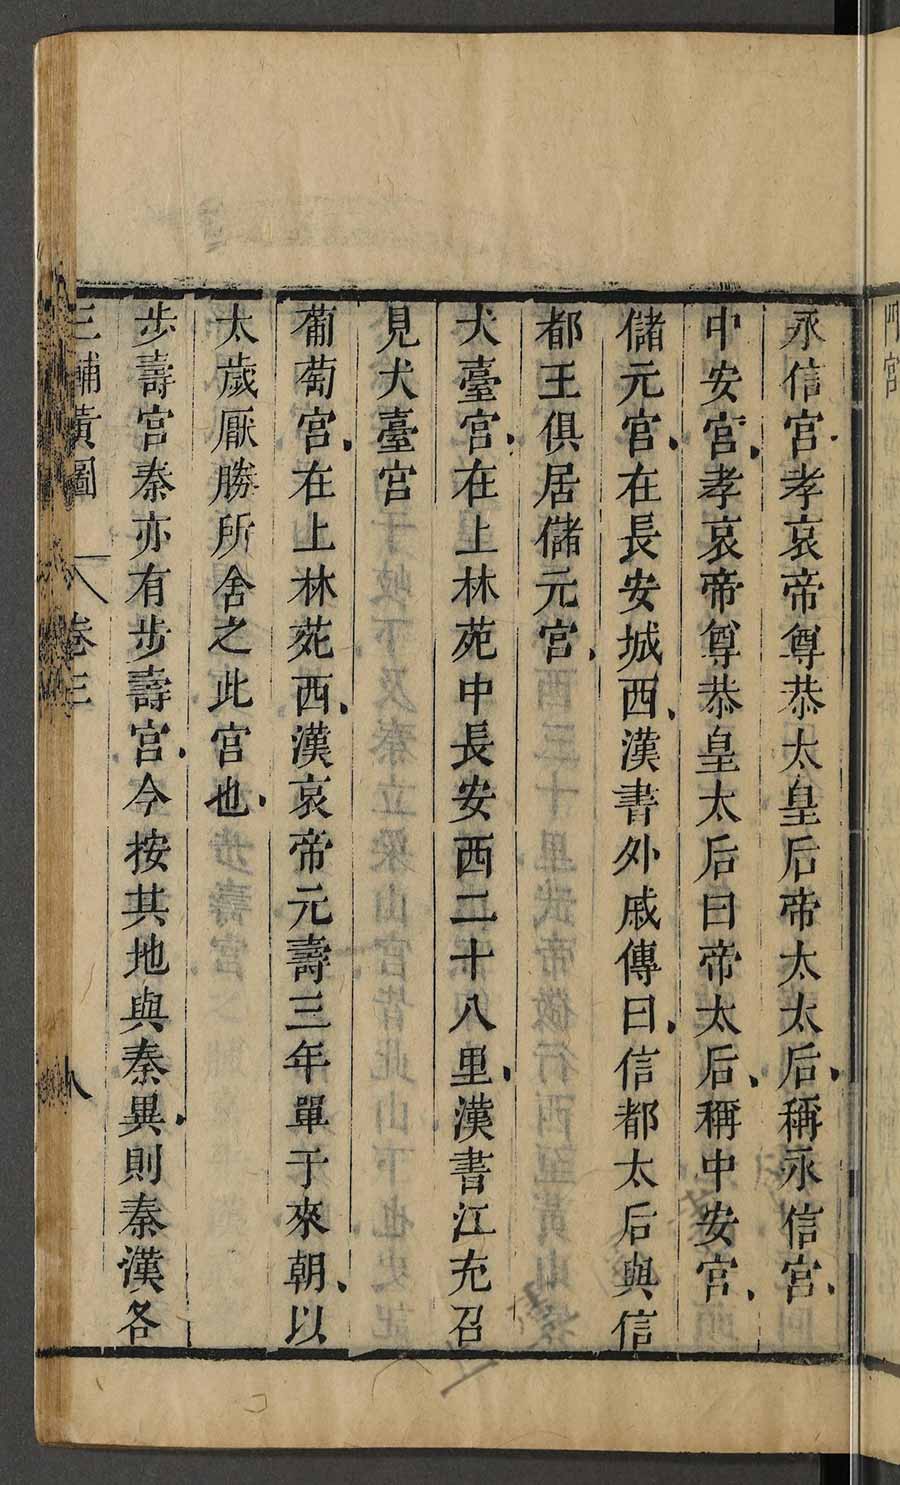 門宮
永信宮孝哀帝尊恭太皇后帝太太后稱永信宮
中安宮孝哀帝尊恭皇太后曰帝太后稱中安宮
儲元宮在長安城西漢書外戚傳曰信都太后與信
都王俱居儲元宮
犬臺宮在上林苑中長安西二十八里漢書江充召
見犬臺宮
葡萄宮在上林苑西漢哀帝元壽三年單于來朝以
太歲厭勝所舍之此宮也
步壽宮秦亦有步壽宮今按其地與秦異則秦漢各
三輔黃圖 卷三 八